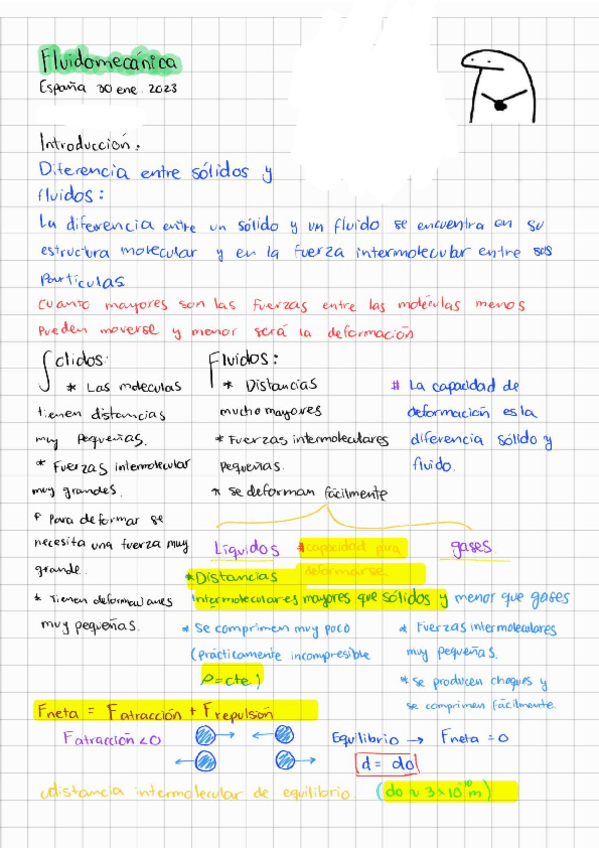 Fluidomecánica
España 30 ene. 2023
Introducción:
Diferencia entre sólidos y
fluidos:
La diferencia entre un sólido y un fluido se encuentra en su
estructura molecular y en la fuerza intermolecular entre sus
partículas
Cuanto mayores son las fuerzas entre las moléculas menos
pueden moverse y menor será la deformación
Sólidos:
* Las moleculas
tienen distancias
muy pequeñas.
* Fuerzas intermolecular
muy grandes.
Para deformar se
necesita una fuerza muy
grande.
* Tienen deformaciones
muy pequeñas.
Fluidos:
* Distancias
mucho mayores
* Fuerzas intermoleculares
pequeñas.
* se deforman fácilmente
# La capacidad de
deformación es la
diferencia sólido y
fluido.
Líquidos
# capacidad para
deformarse.
gases
* Distancias
intermoleculares mayores que sólidos y menor que gases
* se comprimen muy poco
(prácticamente incompresible
ρ=cte;
* Fuerzas intermoleculares
muy pequeñas.
* se producen choques y
se comprimen fácilmente.
Fneta = Fatracción + Frepulsión
Fatracción<0
Equilibrio → Fneta = 0
d = do
distancia intermolecular de equilibrio. (do ≈ 3×10⁻¹⁰ m)